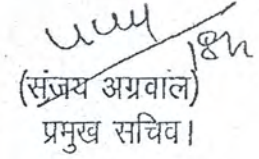 (संजय अग्रवाल)
प्रमुख सचिव।